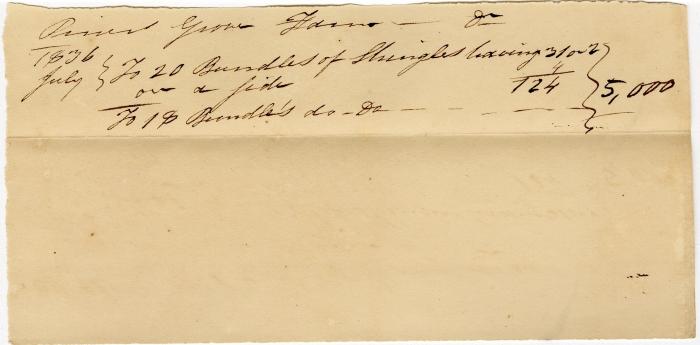 Pinest Grove Farm — Dr
1836
July } To 20 Bundles of Shingles having 31 or 2
on a side 124 } 5,000
To 18 Bundle's do - Do - - - -